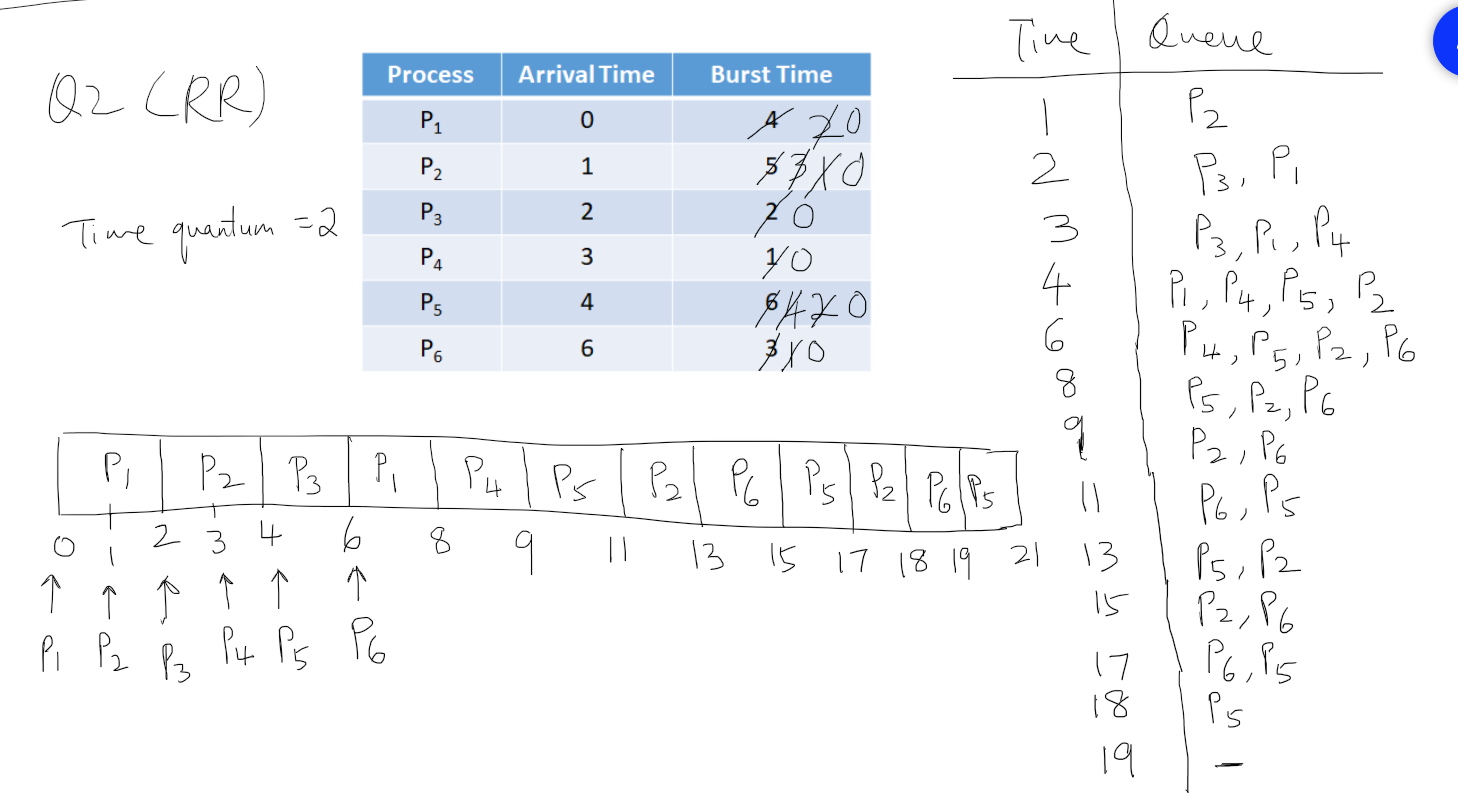 Q2 (RR)
Time quantum = 2
Process Arrival Time Burst Time
P1 0 4 2 0
P2 1 5 3 1 0
P3 2 2 0
P4 3 1 0
P5 4 6 4 2 0
P6 6 3 1 0
P1 P2 P3 P1 P4 P5 P2 P6 P5 P2 P6 P5
0 1 2 3 4 6 8 9 11 13 15 17 18 19 21
↑ ↑ ↑ ↑ ↑ ↑
P1 P2 P3 P4 P5 P6
Time Queue
1 P2
2 P3, P1
3 P3, P1, P4
4 P1, P4, P5, P2
6 P4, P5, P2, P6
8 P5, P2, P6
9 P2, P6
11 P6, P5
13 P5, P2
15 P2, P6
17 P6, P5
18 P5
19 -